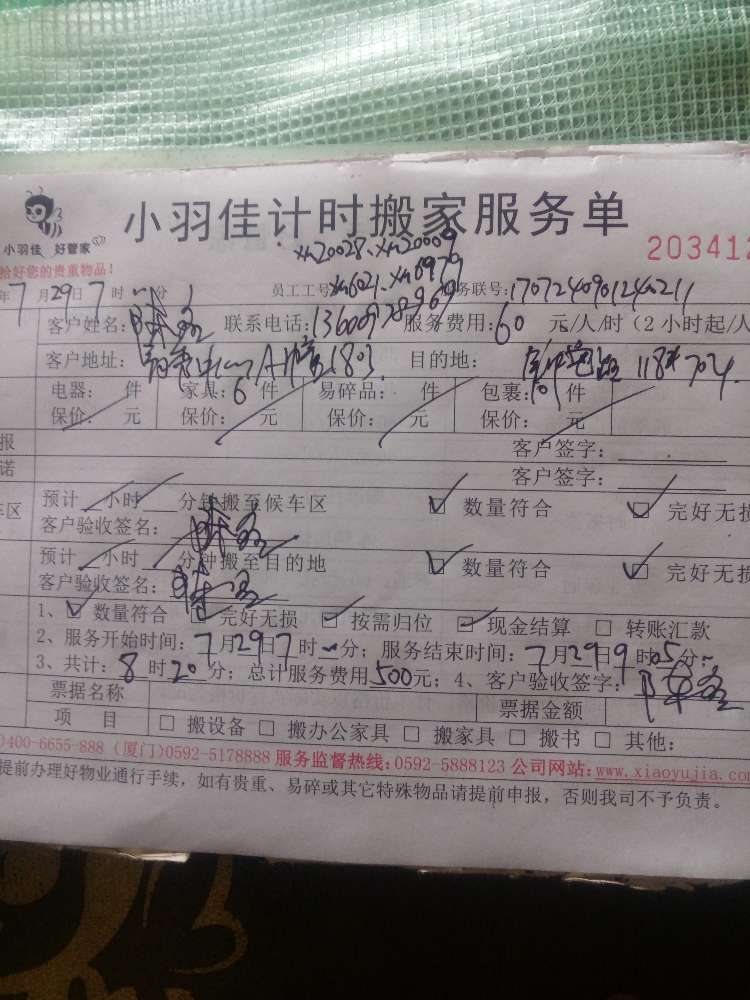 小羽佳计时搬家服务单
小羽佳 好管家
203412
拾好您的贵重物品!
xm20028、xm20009
xm6021、xm6979
年7月29日7时 分 员工工号: 务联号:170724090124a211
客户姓名: 联系电话: 服务费用:60 元/人/时(2小时起/人
客户地址: 1803 目的地: 118# 704
电器: 件 家具:6 件 易碎品: 件 包裹:10 件
保价: 元 保价: 元 保价: 元 保价: 元
报 客户签字:
诺 客户签字:
预计 小时 分钟搬至候车区 ☑ 数量符合 ☑ 完好无损
车区 客户验收签名:
预计 小时 分钟搬至目的地 ☑ 数量符合 ☑ 完好无损
客户验收签名:
1、☑ 数量符合 ☑ 完好无损 ☑ 按需归位 ☑ 现金结算 □ 转账汇款
2、服务开始时间:7月29日7时 分;服务结束时间:7月29日9时05分
3、共计:8时20分;总计服务费用500元;4、客户验收签字:
票据名称 票据金额
项 目 □ 搬设备 □ 搬办公家具 □ 搬家具 □ 搬书 □ 其他:
)400-6655-888 (厦门)0592-5178888 服务监督热线:0592-5888123 公司网站:www.xiaoyujia.com
提前办理好物业通行手续,如有贵重、易碎或其它特殊物品请提前申报,否则我司不予负责。